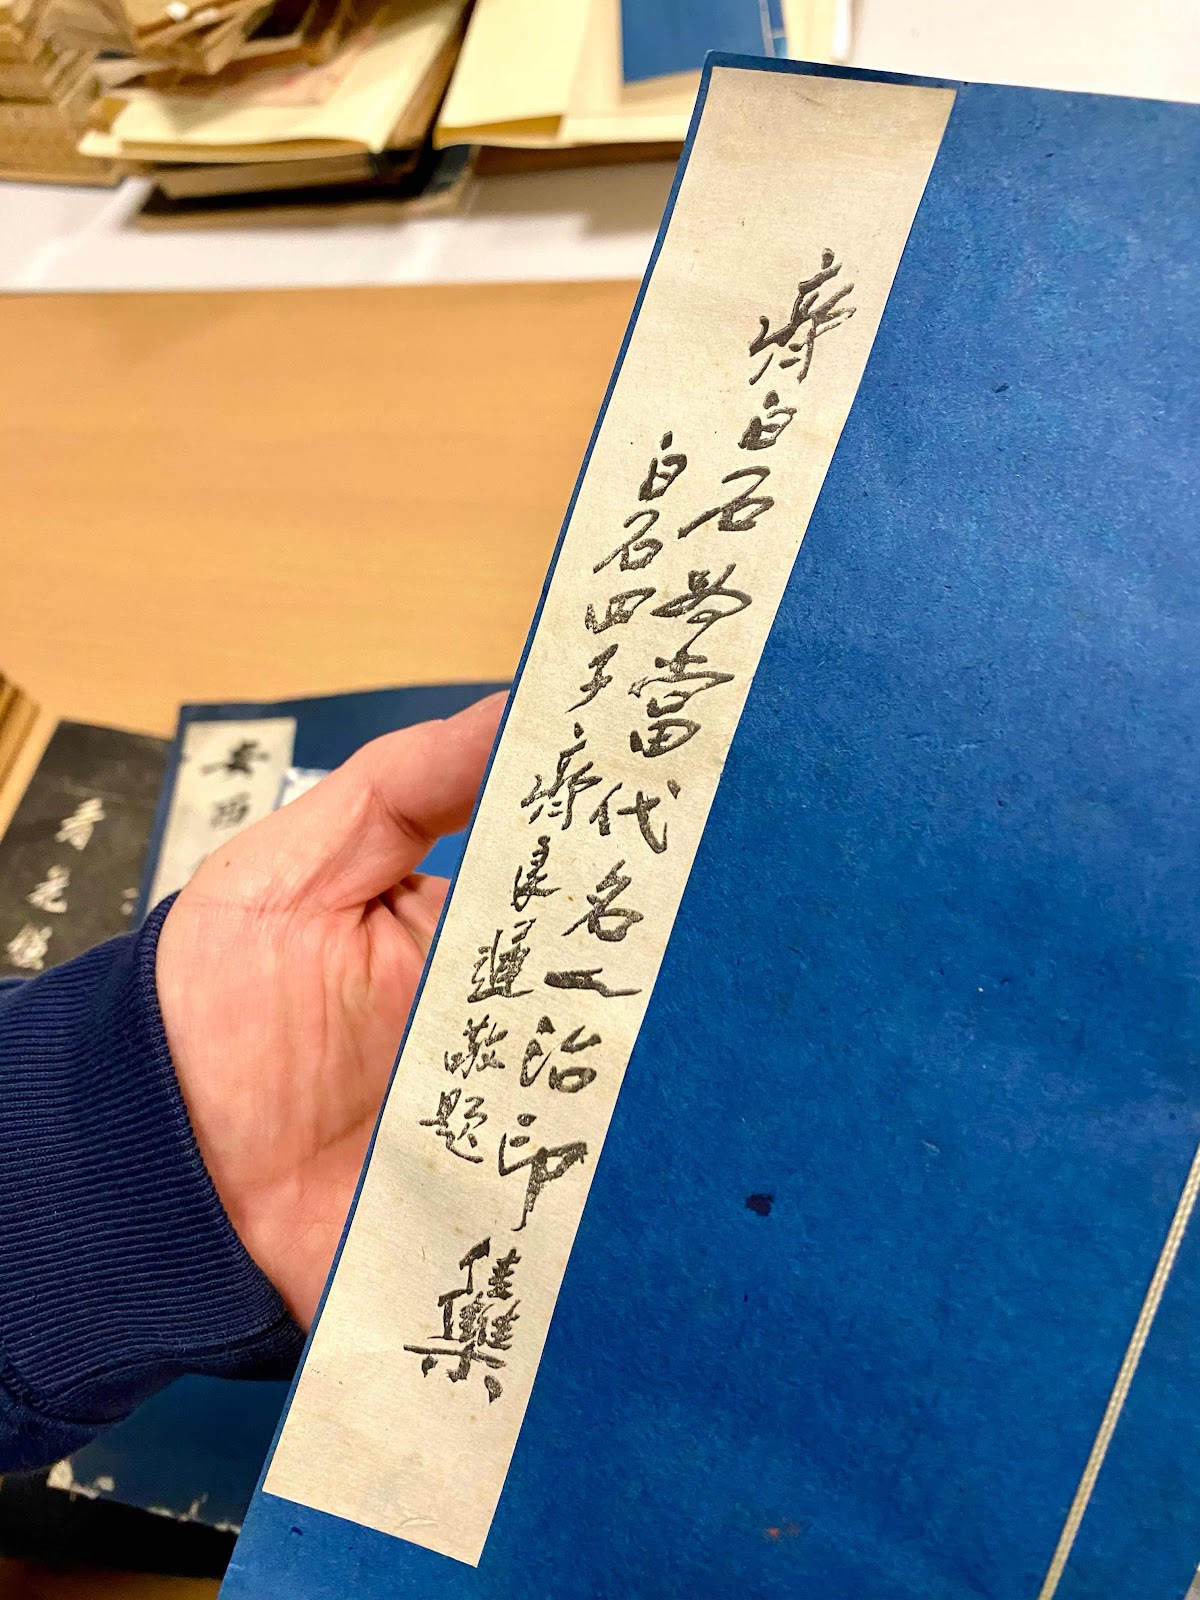 齊白石為當代名人治印集
白石四子齊良遲敬題
安西